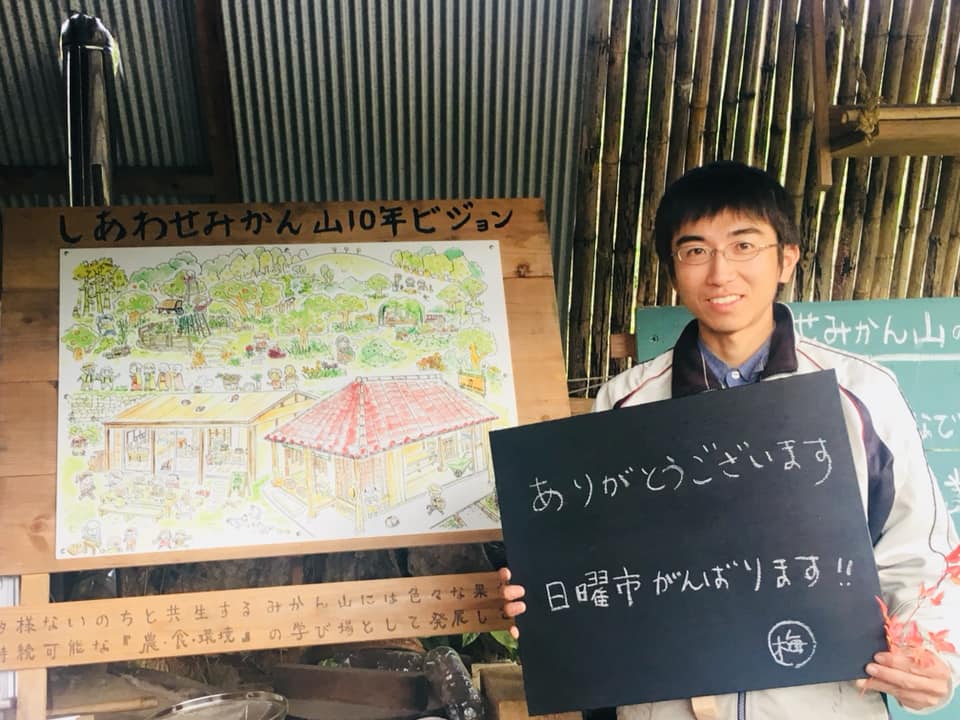 しあわせみかん山10年ビジョン
様ないのちと共生するみかん山には色々な果
持続可能な『農・食・環境』の学び場として発展し
せみかん山の
なび
ありがとうございます
日曜市がんばります!!
梅